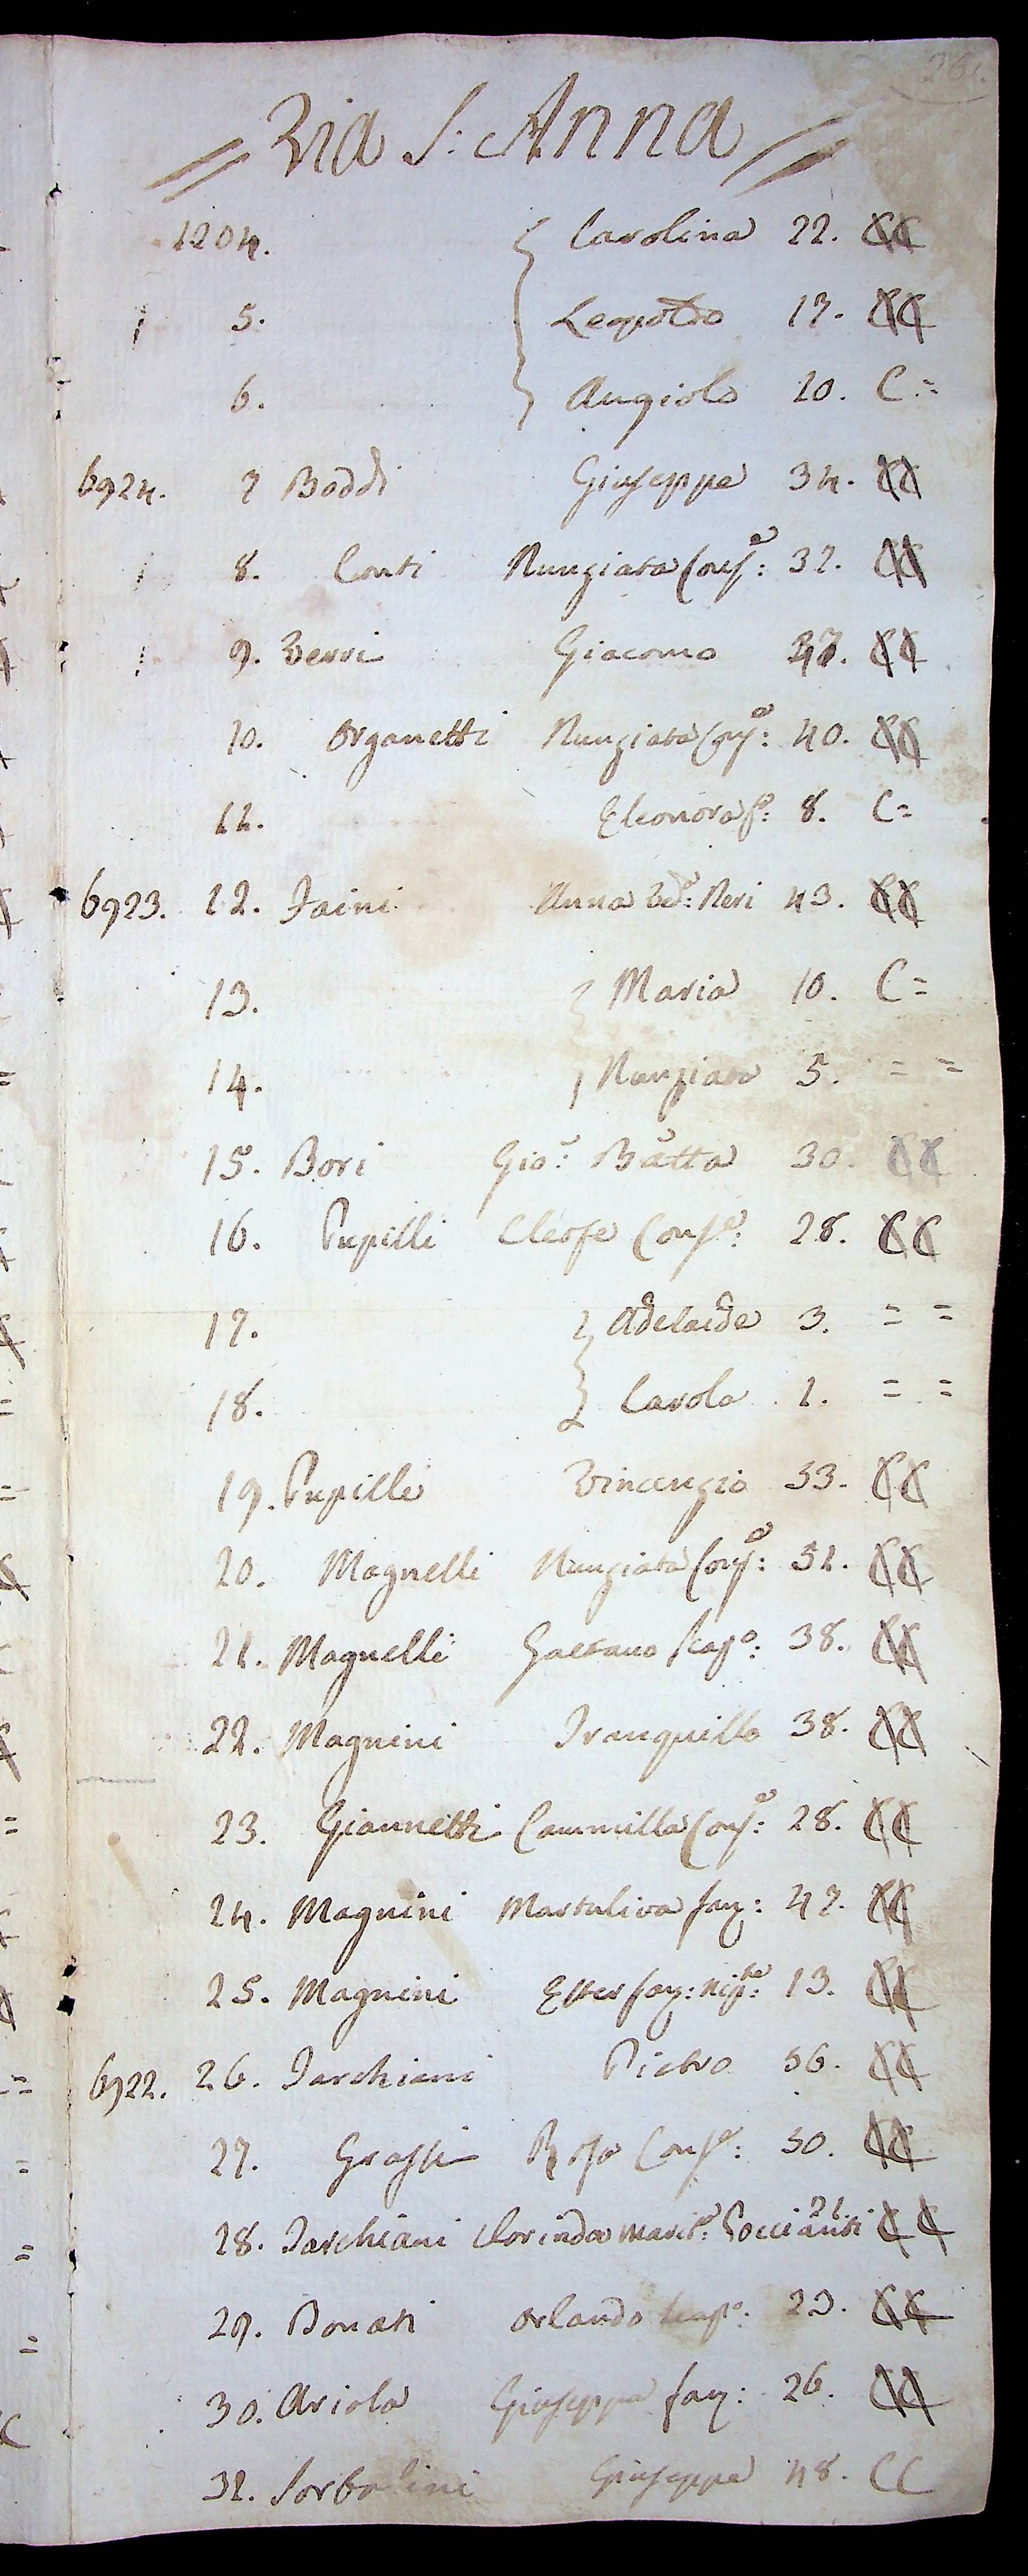 = Via S: Anna =
1204. { Carolina 22. CC
1 5. Leopoldo 17. CC
6. Augiolo 10. C.=
6924. 7 Boddi Giuseppe 34. CC
1 8. Conti Nunziata Conse: 32. CC
1 9. Verri Giacomo CC
10. Organetti Nunziata Conse: 40. CC
11. Eleonora fa: 8. C=
6923. 12. Faini Anna Veda: Neri 43. CC
13. { Maria 10. C=
14. Nunziata 5. = =
15. Bori Gio: Batta 30. CC
16. Pupilli Cleofe Conse: 28. CC
17. { Adelaide 3. = =
18. Carola 1. = =
19. Pupilli Vincenzio 53. CC
20. Magnelli Nunziata Conse: 51. CC
21. Magnelli Gaetano scapo: 38. CC
22. Magnini Tranquillo 38. CC
23. Giannetti Cammilla Conse: 28. CC
24. Magnini Mastuliva fan: 47. CC
25. Magnini Ester fan: Nipte: 13. CC
6922. 26. Tarchiani Pietro 56. CC
27. Grassi Rosa Conse: 50. CC
28. Tarchiani Clorinda Marita: Poccianti 21. CC
29. Donati Orlando scapo: 23. CC
30. Ariola Giuseppa fan: 26. CC
31. Sorbolini Giuseppe 48. CC